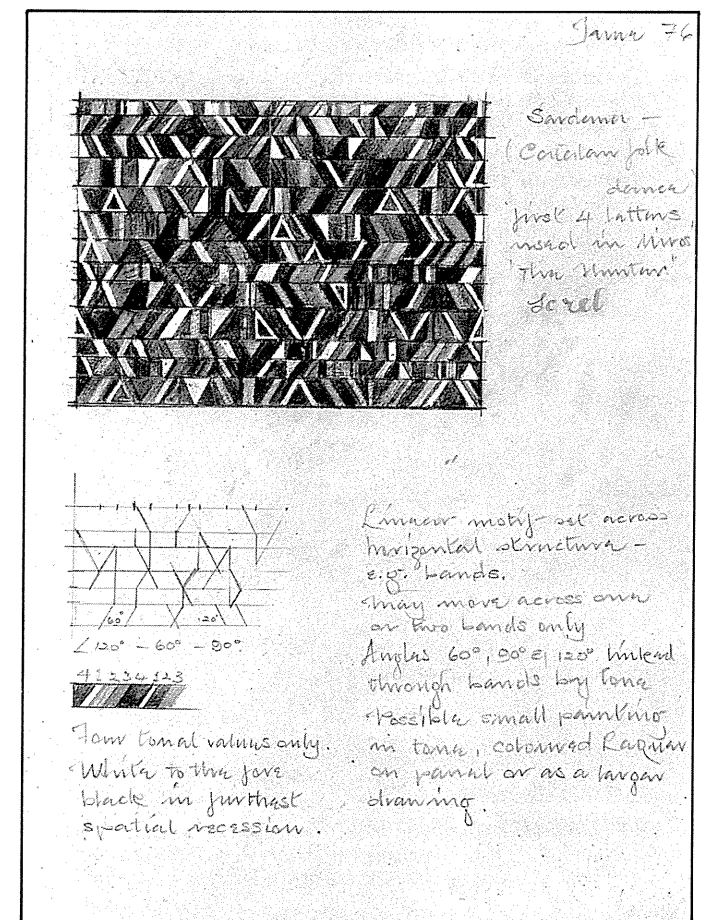 June 76
Sardana –
(Catalan folk
dance)
first 4 letters
used in Miros
"The Hunter"
Sard
60° 120°
∠120° – 60° – 90°.
4 1 2 3 4 1 2 3
Four tonal values only.
White to the fore
black in furthest
spatial recession.
Linear motif set across
horizontal structure –
e.g. bands.
May move across one
or two bands only
Angles 60°, 90° & 120° linked
through bands by tone
Possible small painting
in tone, coloured
on panel or as a larger
drawing.